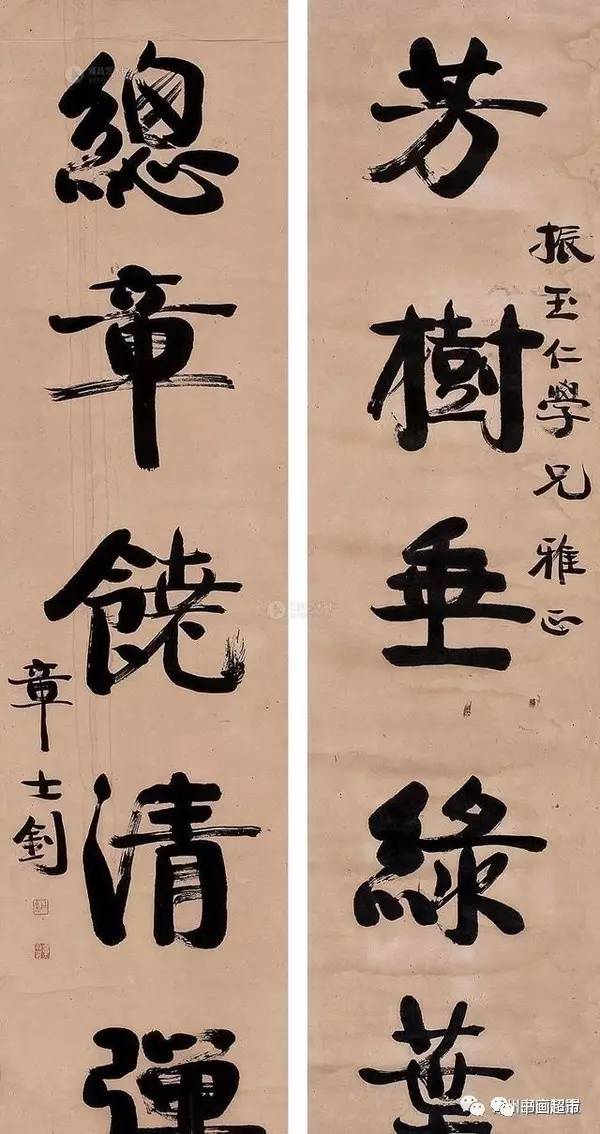 振玉仁學兄雅正
芳樹垂綠葉
總章饒清彈
章士釗
州书画超市